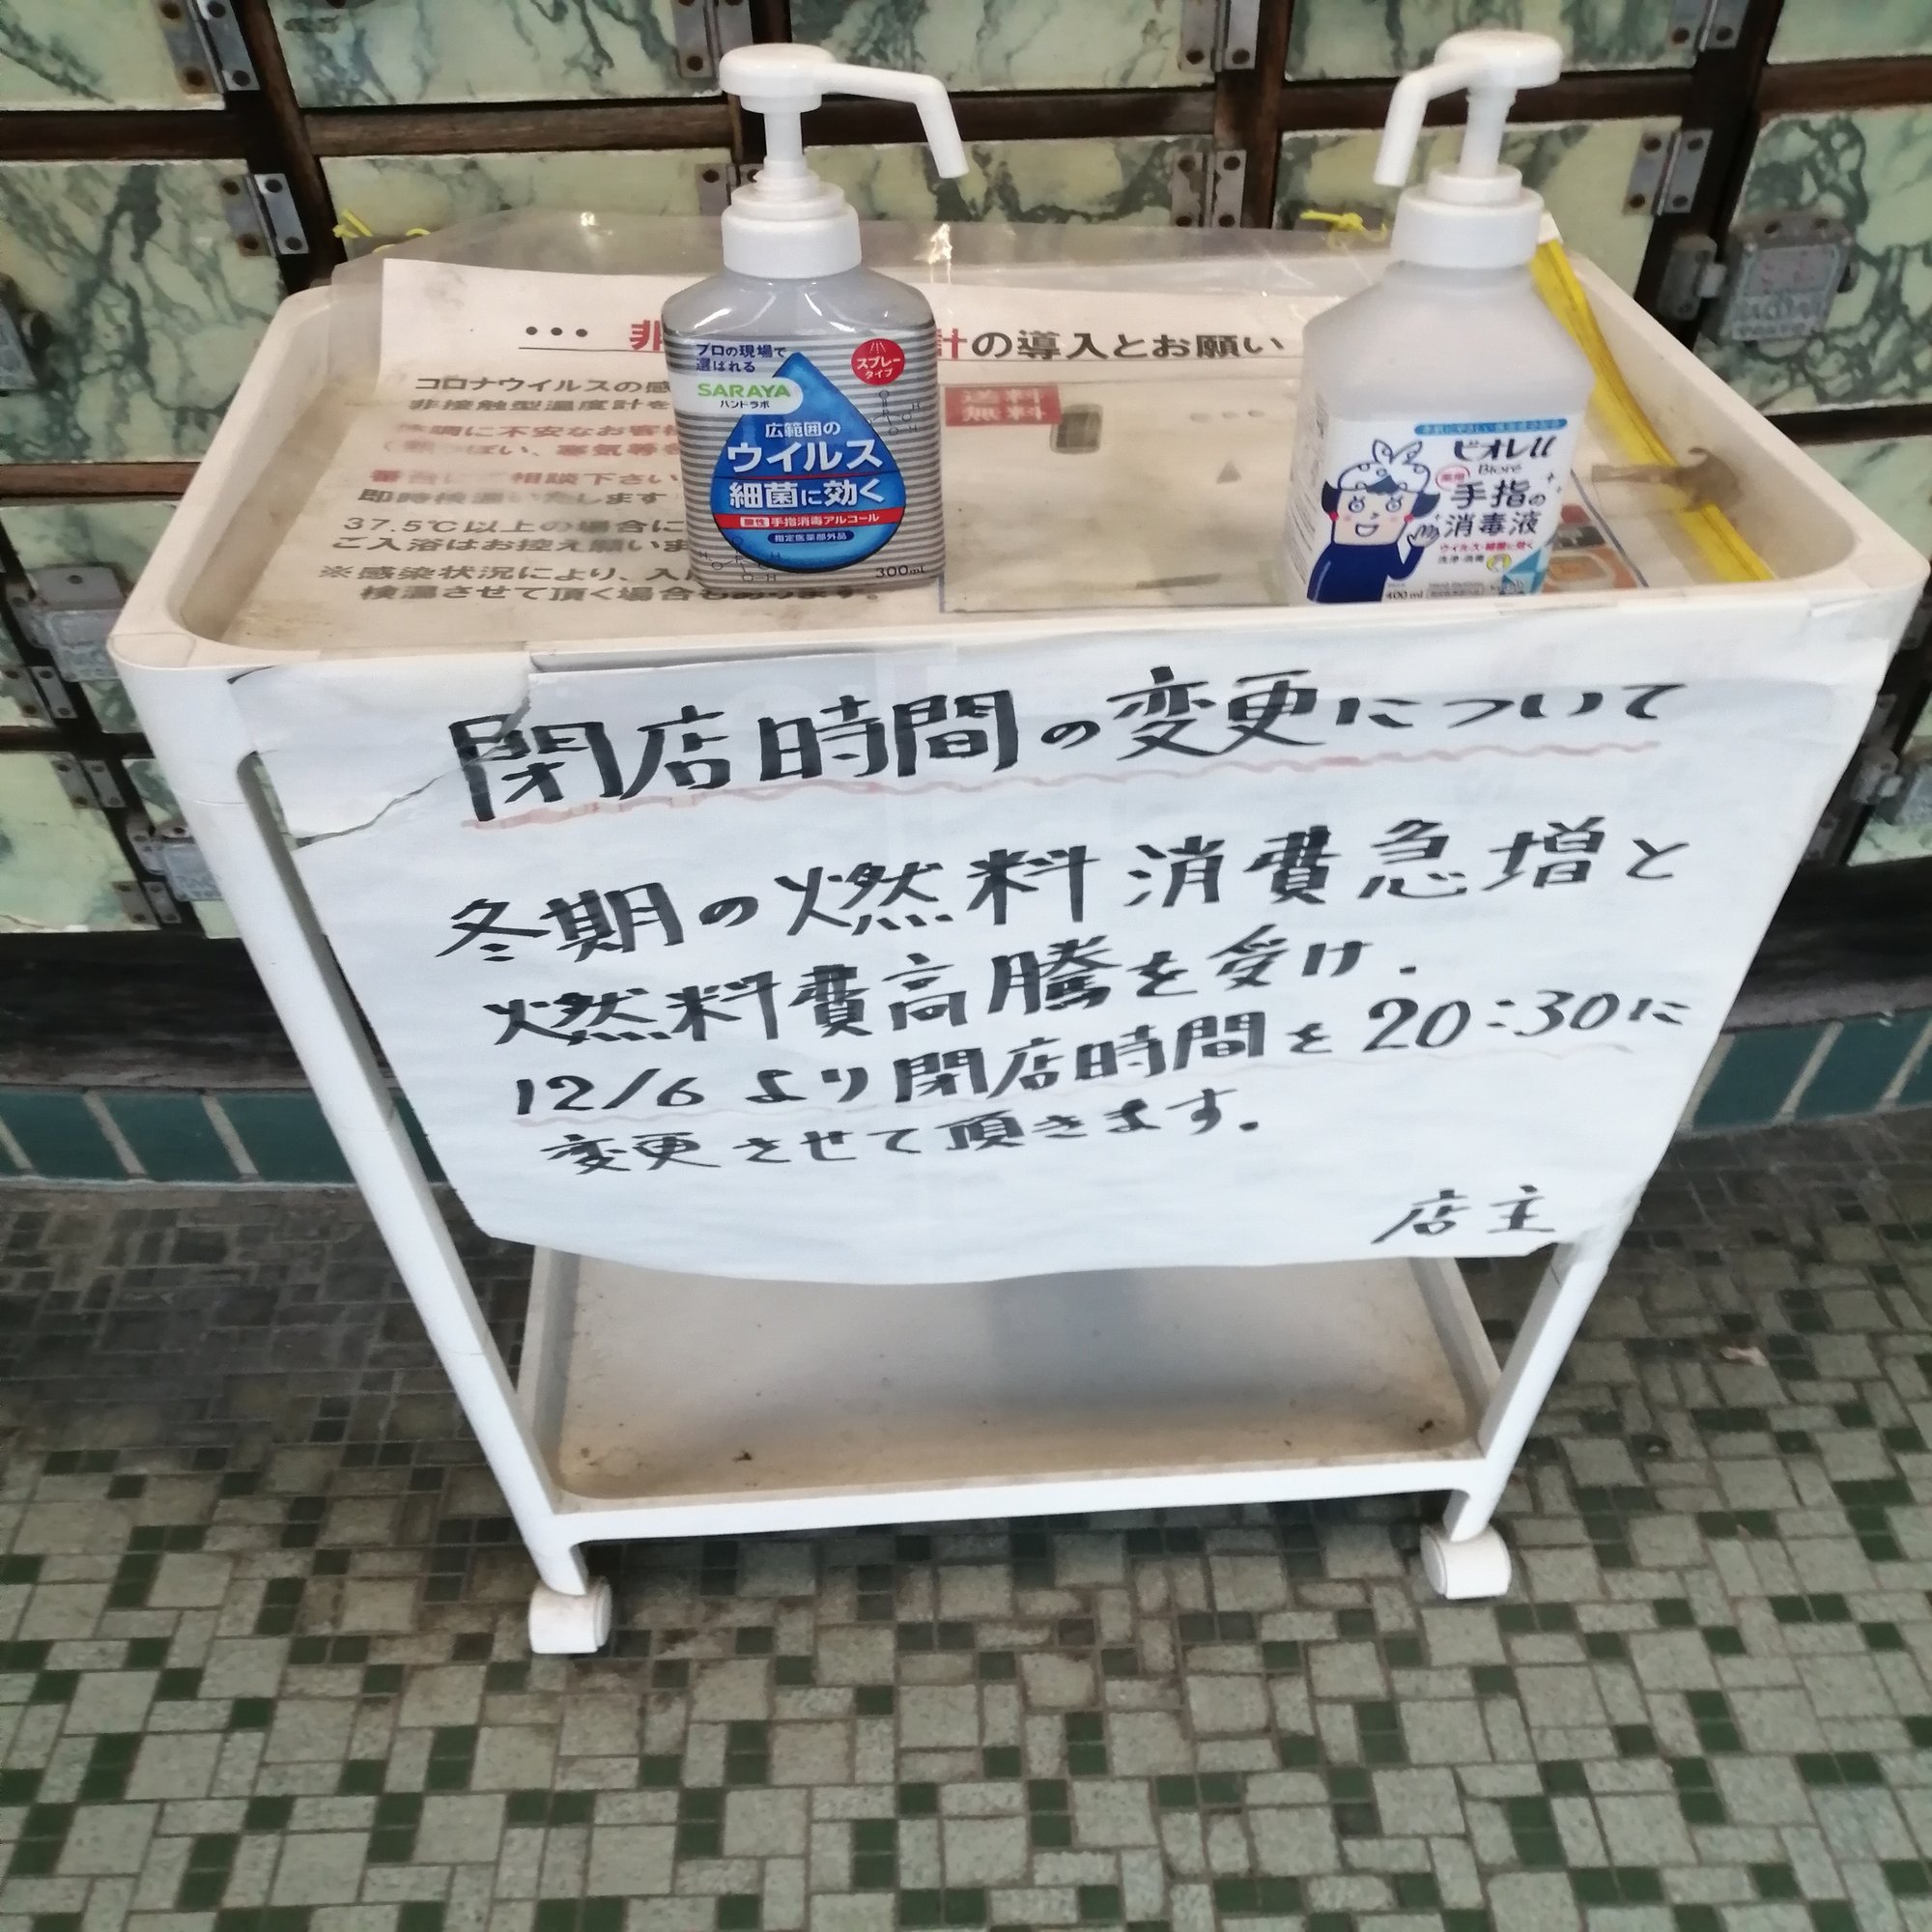 ••• 非 計の導入とお願い
コロナウイルスの感
非接触型温度計を
体調に不安なお客様
っぽい、寒気等を
番台に ご相談下さい
即時検温いたします
37.5℃以上の場合に
ご入浴はお控え願いま
※感染状況により、入
検温させて頂く場合もあります。
プロの現場で
選ばれる
スプレー
タイプ
SARAYA
ハンドラボ
広範囲の
ウイルス
細菌に効く
酸性 手指消毒アルコール
指定医薬部外品
300mL
ビオレu
Bioré
薬用
手指の
消毒液
ウイルス・細菌に効く
洗浄・消毒
400ml
閉店時間の変更について
冬期の燃料消費急増と
燃料費高騰を受け.
12/6より閉店時間を20:30に
変更させて頂きます.
店主